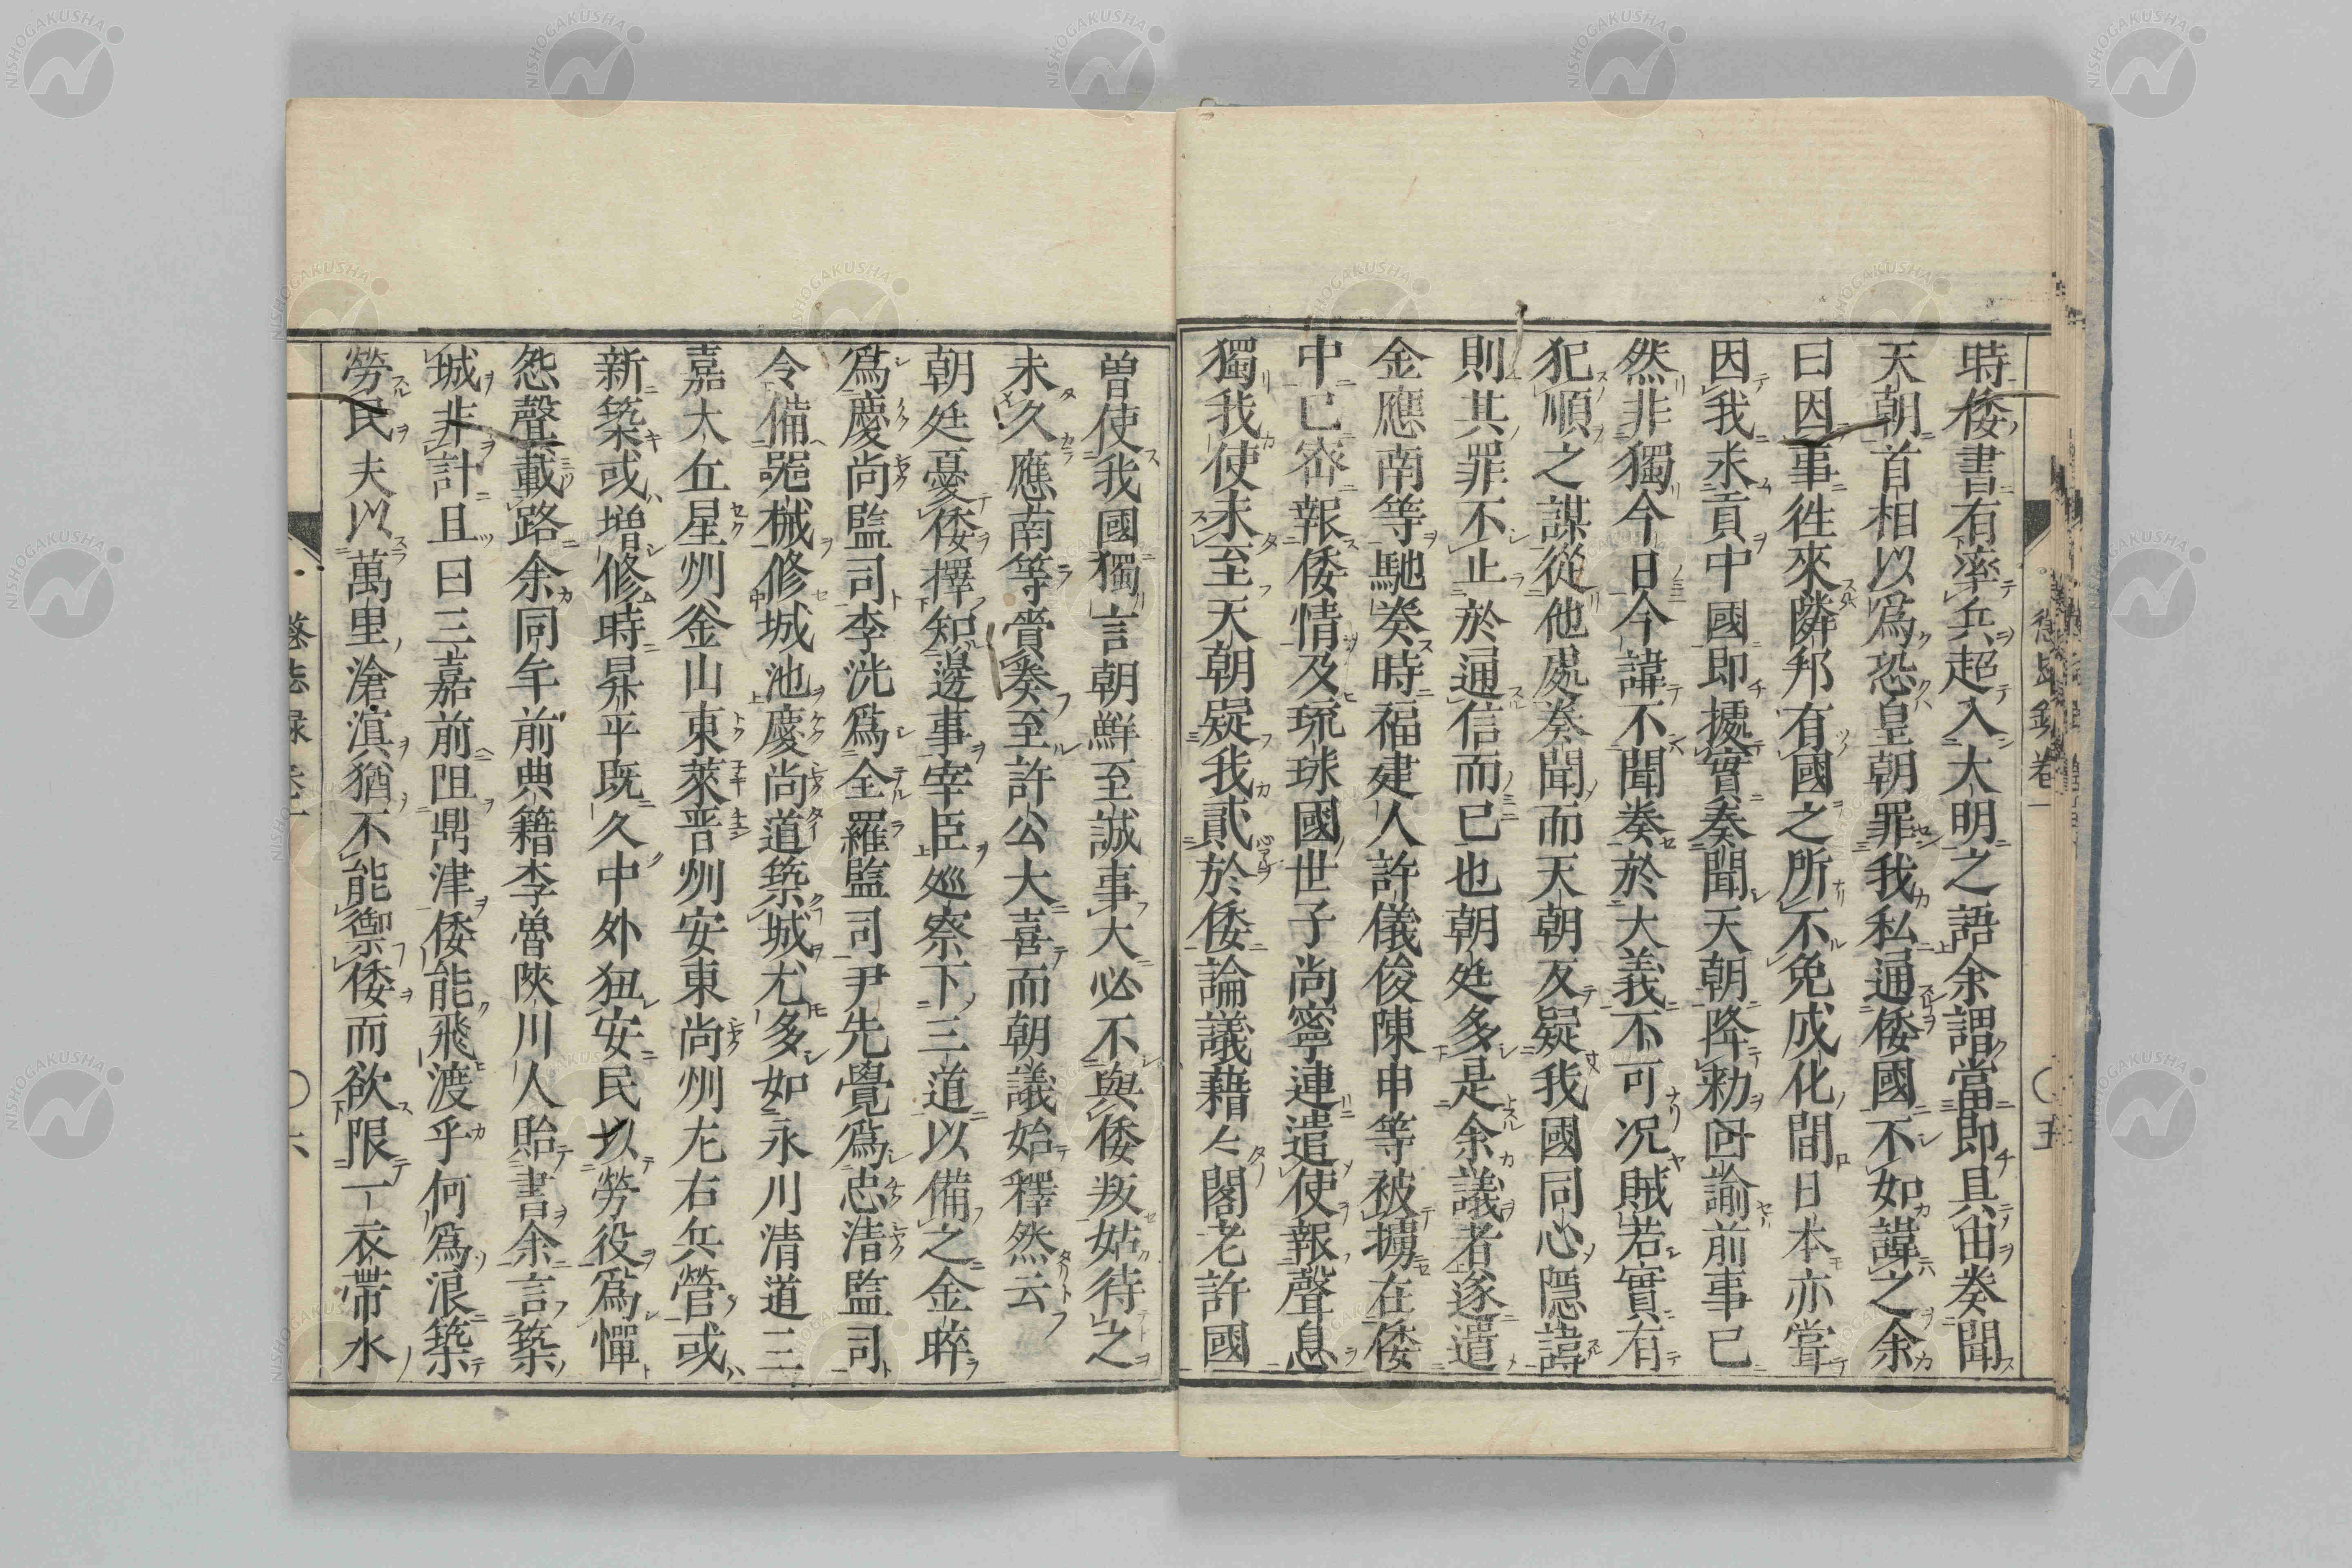 時倭書有率兵超入大明之語余謂當即具由奏聞
天朝首相以爲恐皇朝罪我私通倭國不如諱之余
曰因事徃來隣邦有國之所不免成化間日本亦嘗
因我求貢中國即據實奏聞天朝降勑囘諭前事已
然非獨今日今諱不聞奏於大義不可况賊若實有
犯順之謀從他處奏聞而天朝反疑我國同心隱諱
則其罪不止於通信而已也朝廷多是余議者遂遣
金應南等馳奏時福建人許儀俊陳申等被擄在倭
中已宻報倭情及琉球國世子尚寧連遣使報聲息
獨我使未至天朝疑我貳於倭論議藉々閣老許國
曽使我國獨言朝鮮至誠事大必不與倭叛姑待之
未久應南等賫奏至許公大喜而朝議始釋然云
朝廷憂倭擇知邊事宰臣廵察下三道以備之金睟
爲慶尚監司李洸爲全羅監司尹先覺爲忠清監司
令備噐械修城池慶尚道築城尤多如永川清道三
嘉大丘星州釜山東萊晋州安東尚州左右兵營或
新築或増修時昇平既久中外狃安民以勞役爲憚
怨聲載路余同年前典籍李魯陜川人貽書余言築
城非計且曰三嘉前阻鼎津倭能飛渡乎何爲浪築
勞民夫以萬里滄溟猶不能禦倭而欲限一衣帶水
懲毖録卷一 〇五
毖録 〇六